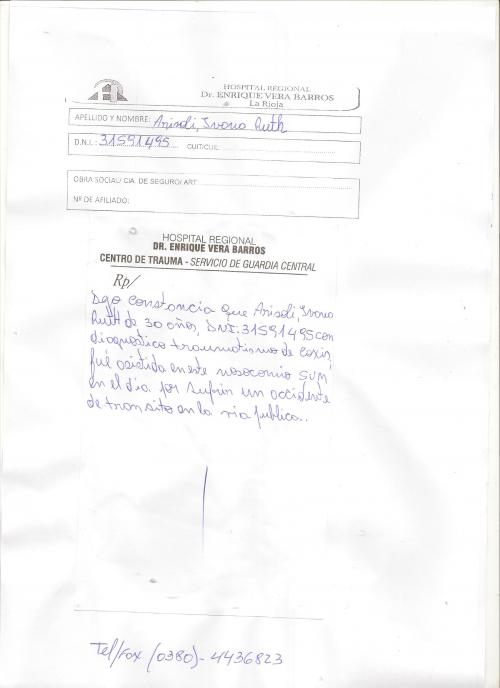 HOSPITAL REGIONAL
Dr. ENRIQUE VERA BARROS
La Rioja
APELLIDO Y NOMBRE: Arisdi, Ivana Ruth
D.N.I.: 31591495 CUIT/CUIL:
OBRA SOCIAL/ CIA. DE SEGURO/ ART
Nº DE AFILIADO:
HOSPITAL REGIONAL
DR. ENRIQUE VERA BARROS
CENTRO DE TRAUMA - SERVICIO DE GUARDIA CENTRAL
Rp/
Dejo constancia que Arisdi, Ivana
Ruth de 30 años, DNI. 31591495 con
diagnostico traumatismo de coxis,
fué asistida en este nosocomio
en el día por sufrir un accidente
de transito en la via publica..
Tel/Fax (0380)-4436823